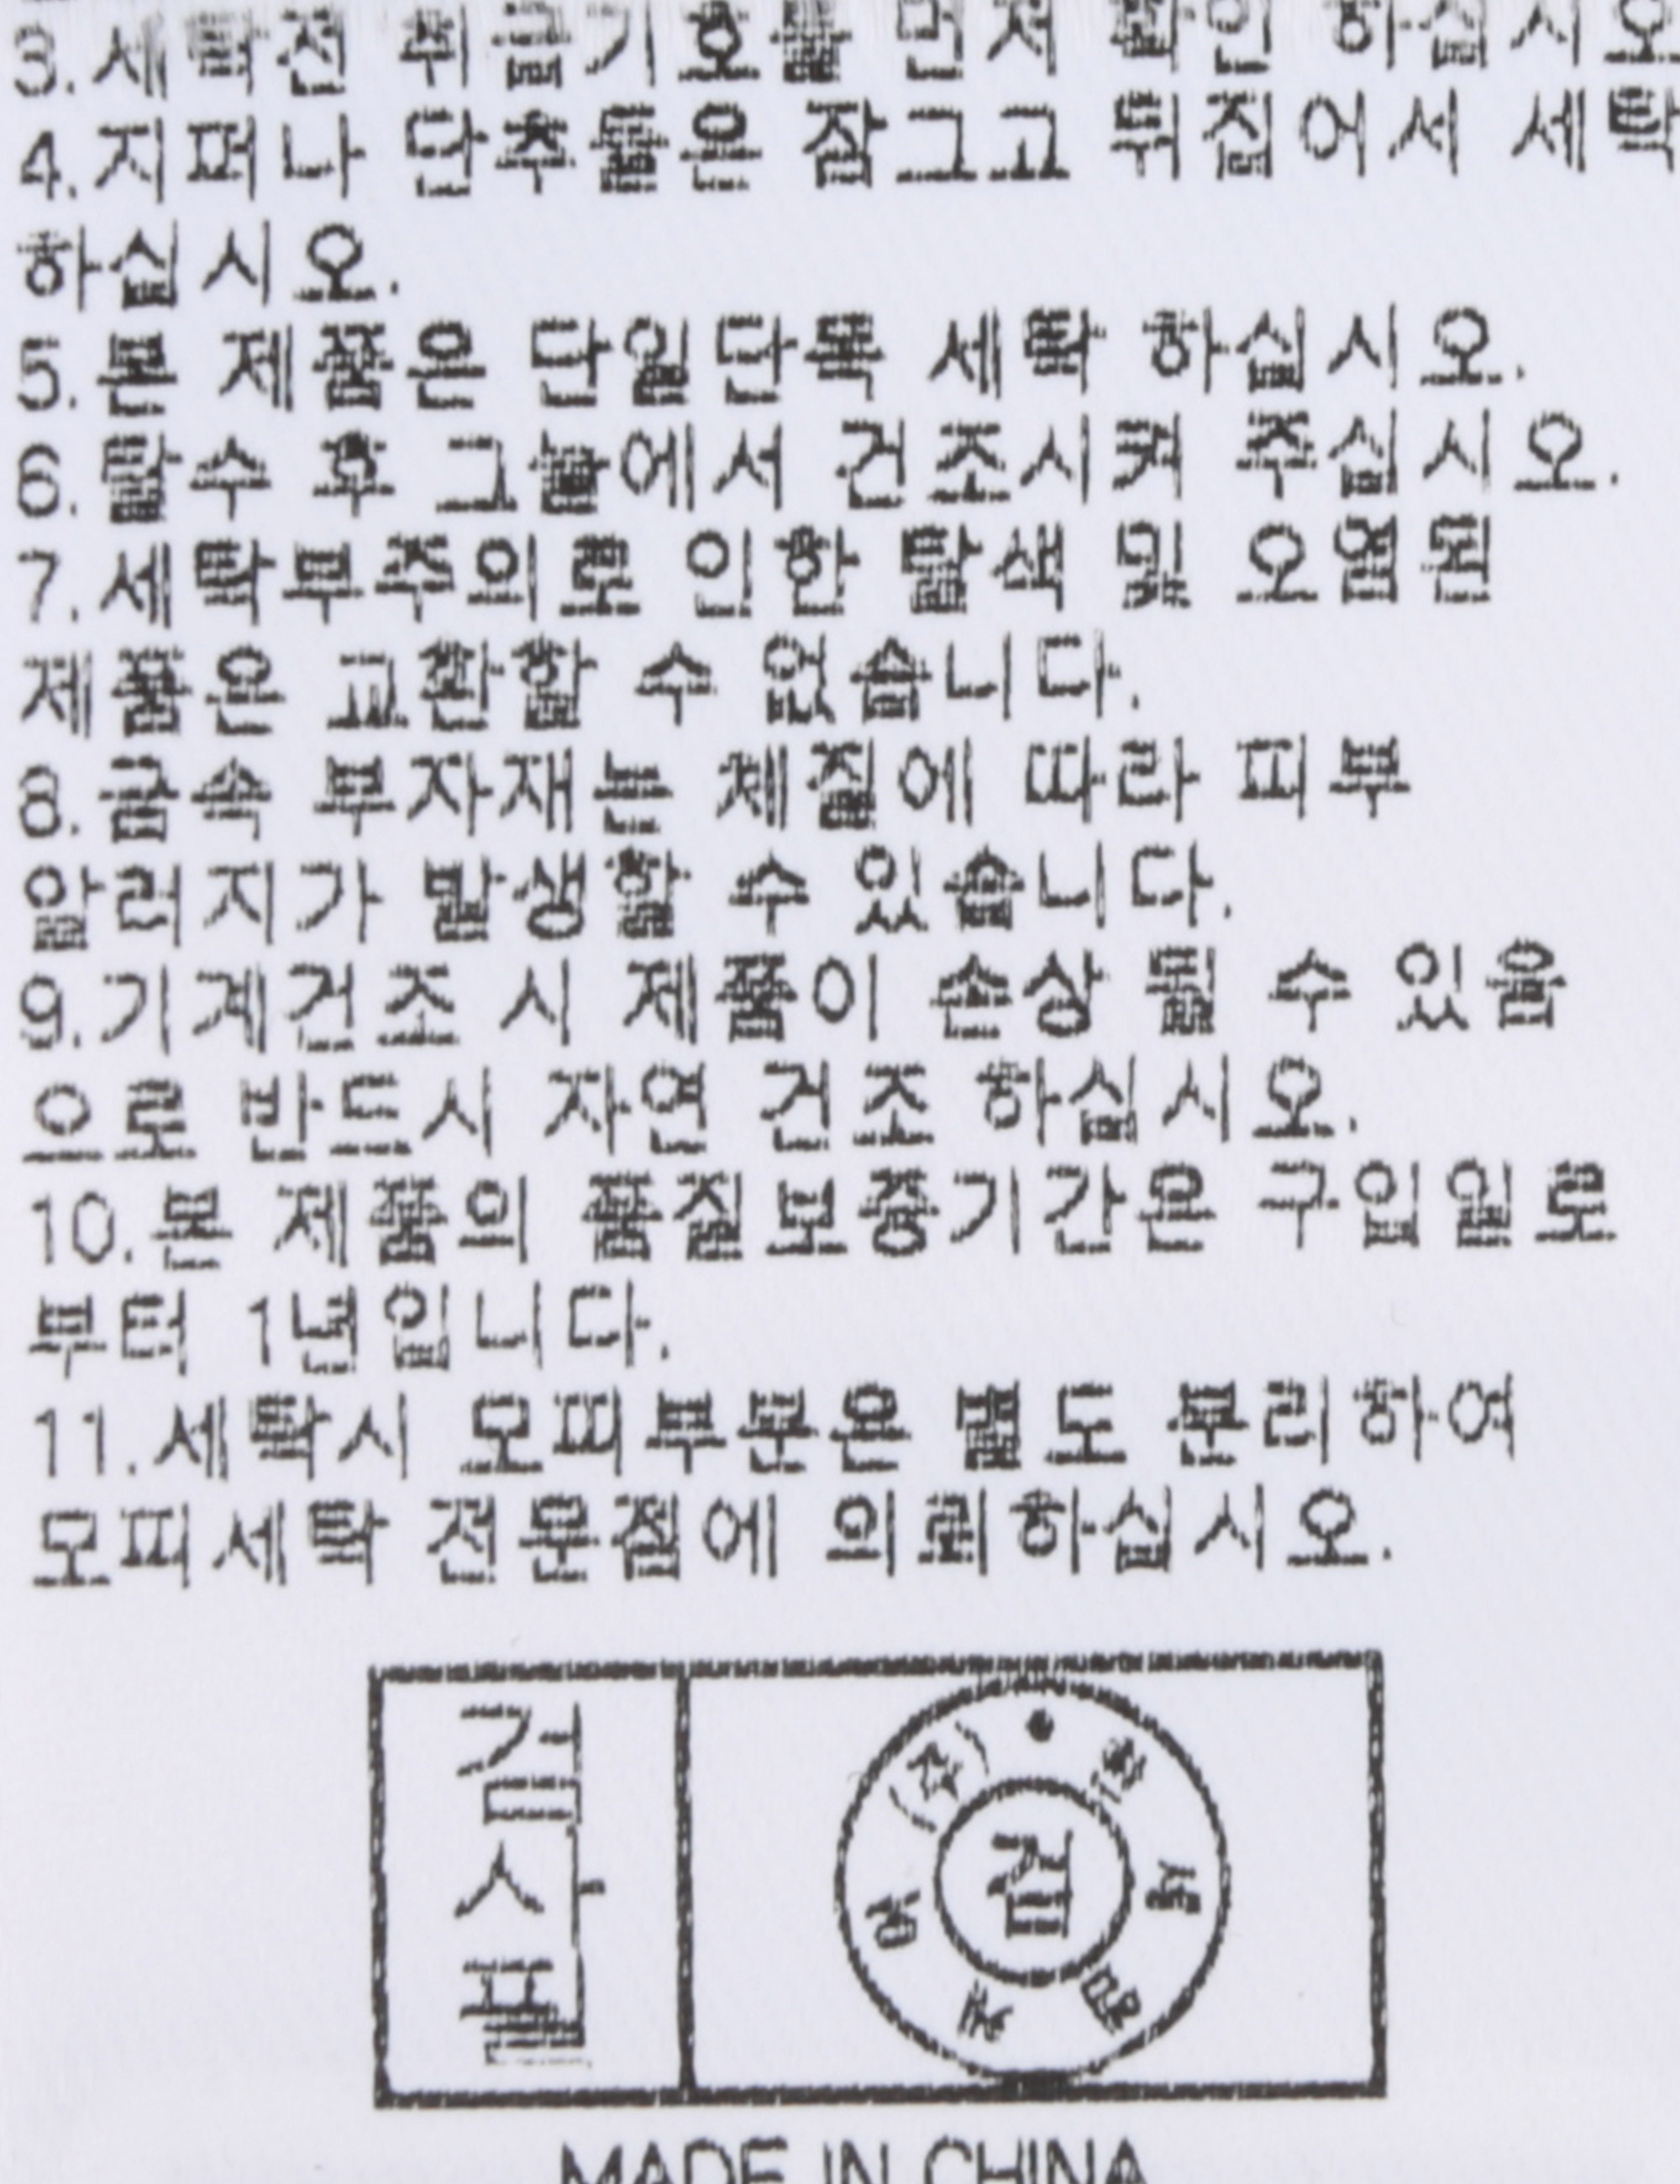 3.세탁전 취급기호를 먼저 확인 하십시오
4.지퍼나 단추들은 잠그고 뒤집어서 세탁
하십시오.
5.본 제품은 단일단독 세탁 하십시오.
6.탈수 후 그늘에서 건조시켜 주십시오.
7.세탁부주의로 인한 탈색 및 오염된
제품은 교환할 수 없습니다.
8.금속 부자재는 체질에 따라 피부
알러지가 발생할 수 있습니다.
9.기계건조 시 제품이 손상 될 수 있음
으로 반드시 자연 건조 하십시오.
10.본 제품의 품질보증기간은 구입일로
부터 1년입니다.
11.세탁시 모피부분은 별도 분리하여
모피세탁 전문점에 의뢰하십시오.
검사필
(주)
검
MADE IN CHINA